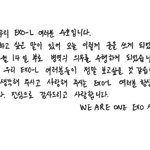 의 EXO-L 여러분 수호입니다.
하고 싶은 말이 있어 오늘 이렇게 글을 쓰게 되었
월 14일 부로 병역의 의무를 수행하게 되었습니
우리 EXO-L 여러분들이 정말 보고싶을 것 같습
생각해 주시고 사랑해 주는 EXO-L 여러분
다. 진심으로 감사드리고 사랑합니다.
WE ARE ONE EXO